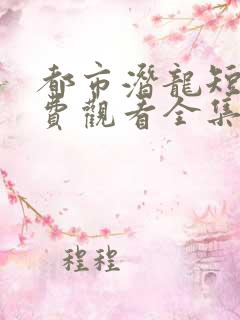 都市潛龍短
費觀看全集
程程